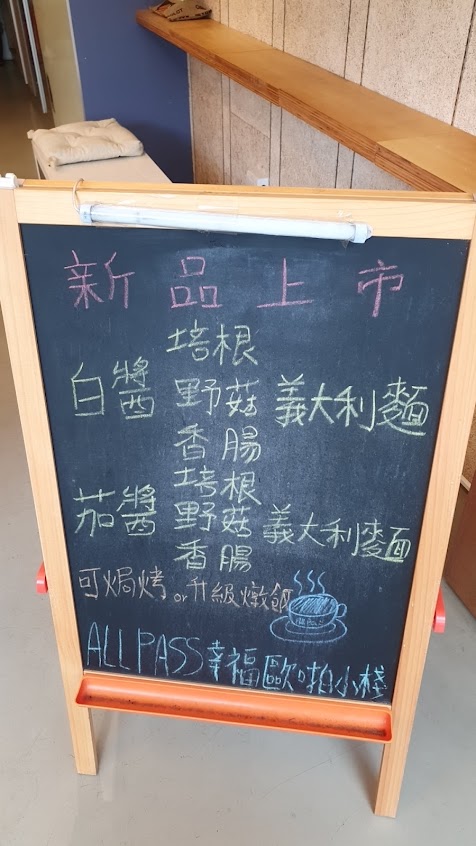 新品上市
培根
白醬 野菇 義大利麵
香腸
培根
茄醬 野菇 義大利麵
香腸
可焗烤or升級燉飯
ALL PASS幸福歐啪小棧